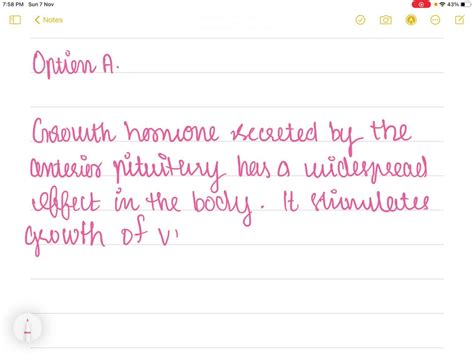 7:58 PM Sun 7 Nov 43%
Notes
Option A.
Growth hormone secreted by the
anterior pituitery has a widespread
effect in the body. It stimulates
growth of v